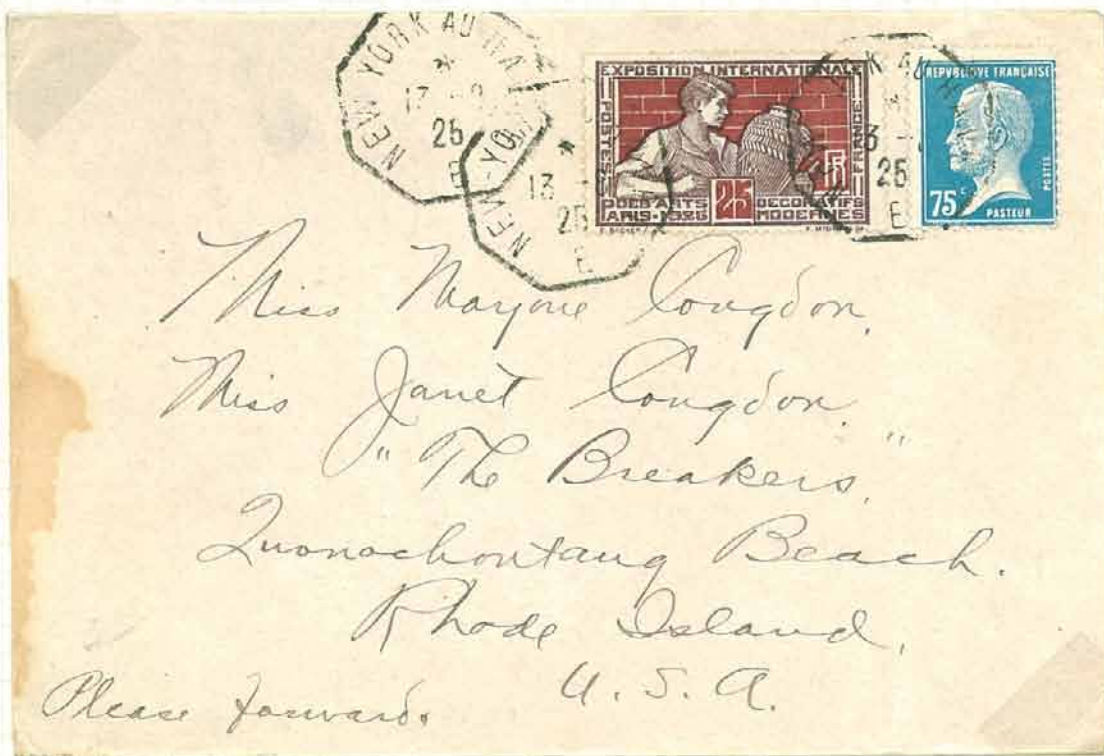 NEW YORK AU HA
13 -8
25
E
NEW-YO
13
25
E
EXPOSITION INTERNATIONALE
POSTES
FRANCE
25
PARIS-1925
ARTS DECORATIFS
MODERNES
YORK AU H
3 -
25
E
REPUBLIQUE FRANÇAISE
POSTES
75c
PASTEUR
Miss Marjorie Congdon.
Miss Janet Congdon.
"The Breakers."
Quonochontaug Beach.
Rhode Island.
U. S. A.
Please forward.